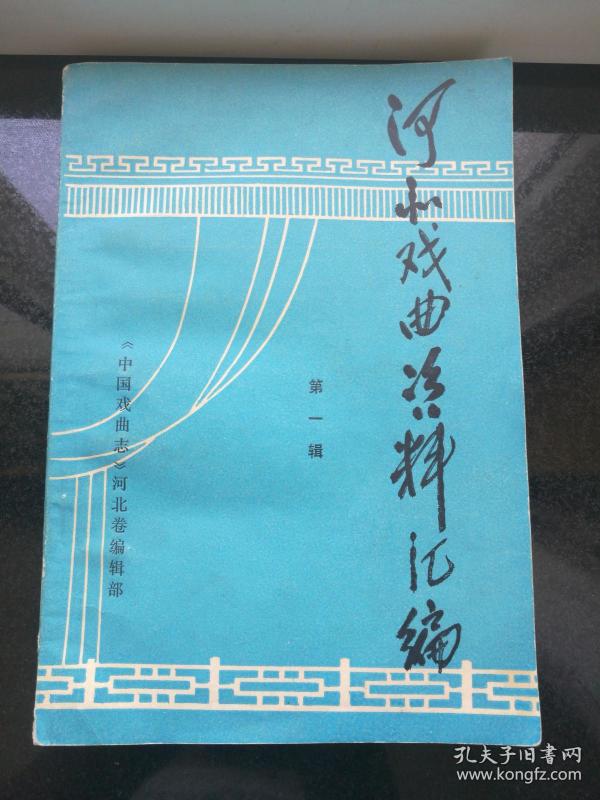 河北戏曲资料汇编
第一辑
《中国戏曲志》河北卷编辑部
孔夫子旧书网
www.kongfz.com